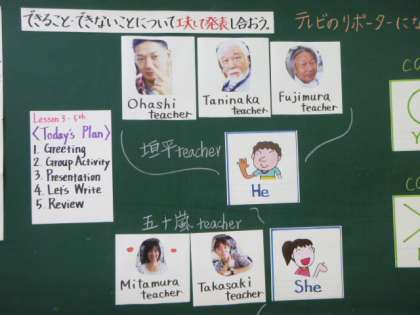 できること・できないことについて工夫して発表し合おう。
テレビのリポーターにな
Ohashi
teacher
Taninaka
teacher
Fujimura
teacher
Lesson 3-5th
〈Today's Plan〉
1. Greeting
2. Group Activity
3. Presentation
4. Let's Write
5. Review
垣平teacher
He
五十嵐teacher
Mitamura
teacher
Takasaki
teacher
She